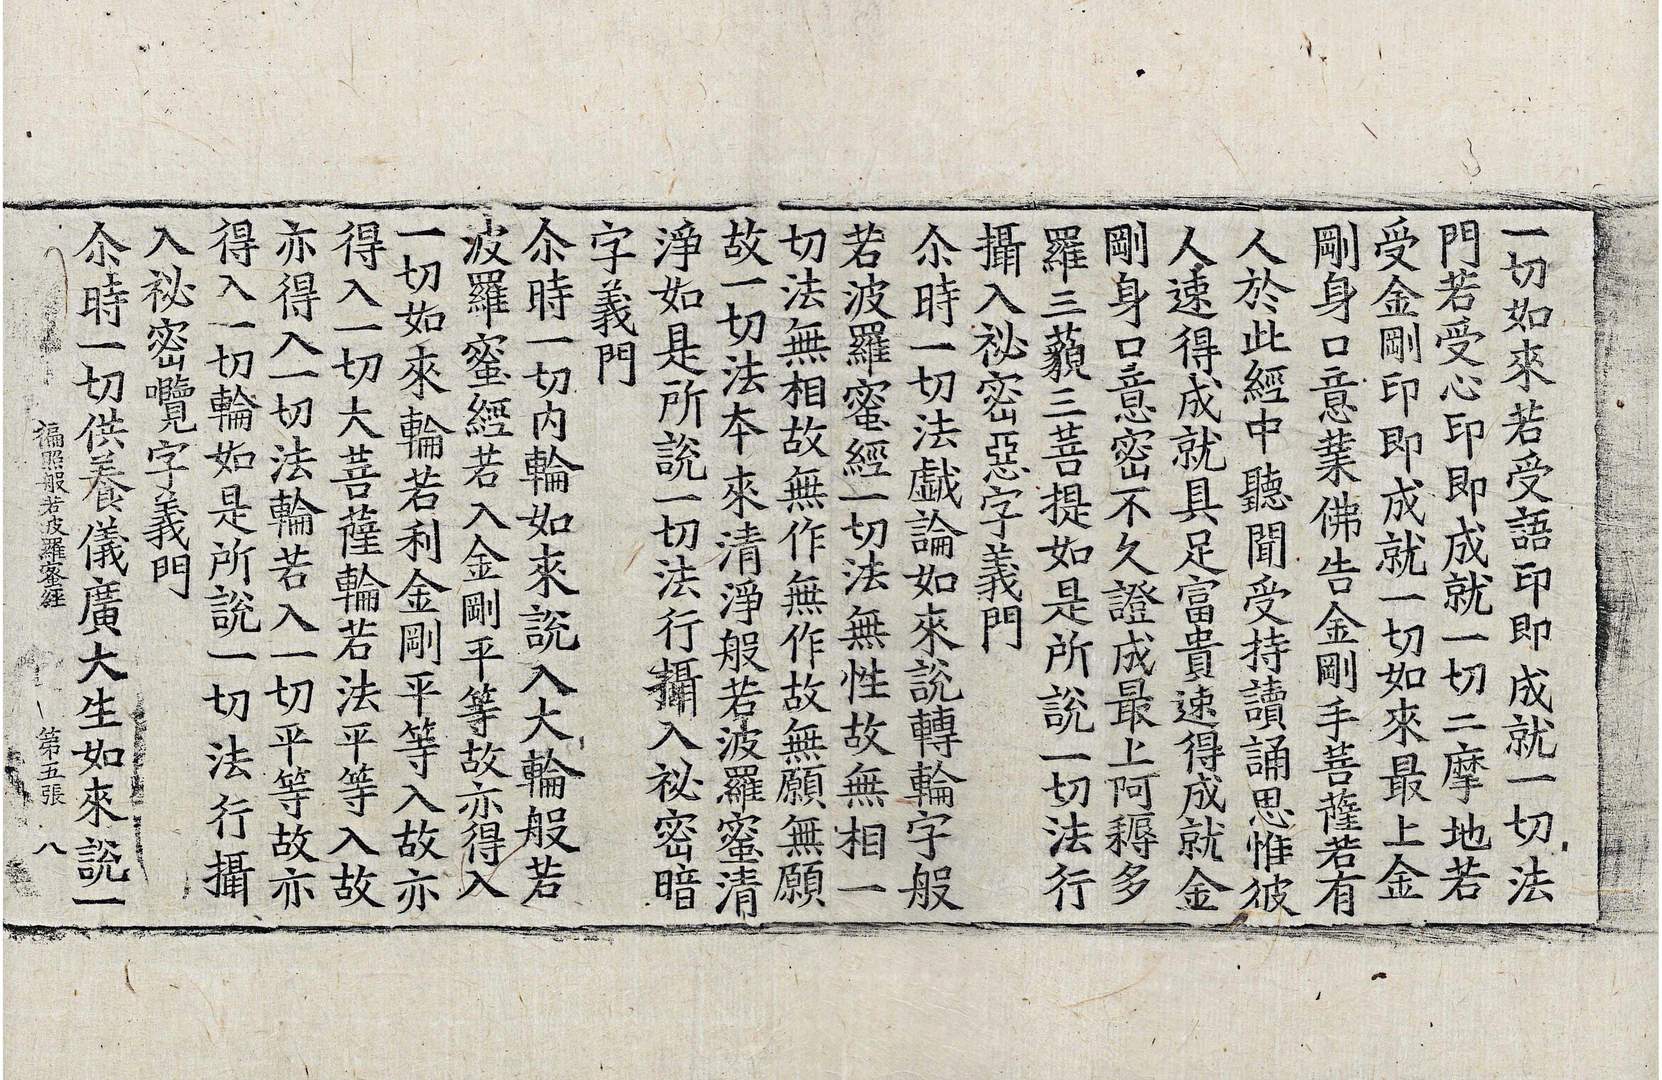 一切如來若受語印即成就一切法
門若受心印即成就一切三摩地若
受金剛印即成就一切如來最上金
剛身口意業佛告金剛手菩薩若有
人於此經中聽聞受持讀誦思惟彼
人速得成就具足富貴速得成就金
剛身口意密不久證成最上阿耨多
羅三藐三菩提如是所說一切法行
攝入祕密惡字義門
尒時一切法戲論如來說轉輪字般
若波羅蜜經一切法無性故無相一
切法無相故無作無作故無願無願
故一切法本來清淨般若波羅蜜清
淨如是所說一切法行攝入祕密暗
字義門
尒時一切內輪如來說入大輪般若
波羅蜜經若入金剛平等故亦得入
一切如來輪若利金剛平等入故亦
得入一切大菩薩輪若法平等入故
亦得入一切法輪若入一切平等故亦
得入一切輪如是所說一切法行攝
入祕密囕字義門
尒時一切供養儀廣大生如來說一
徧照般若波羅蜜經 第五張 八